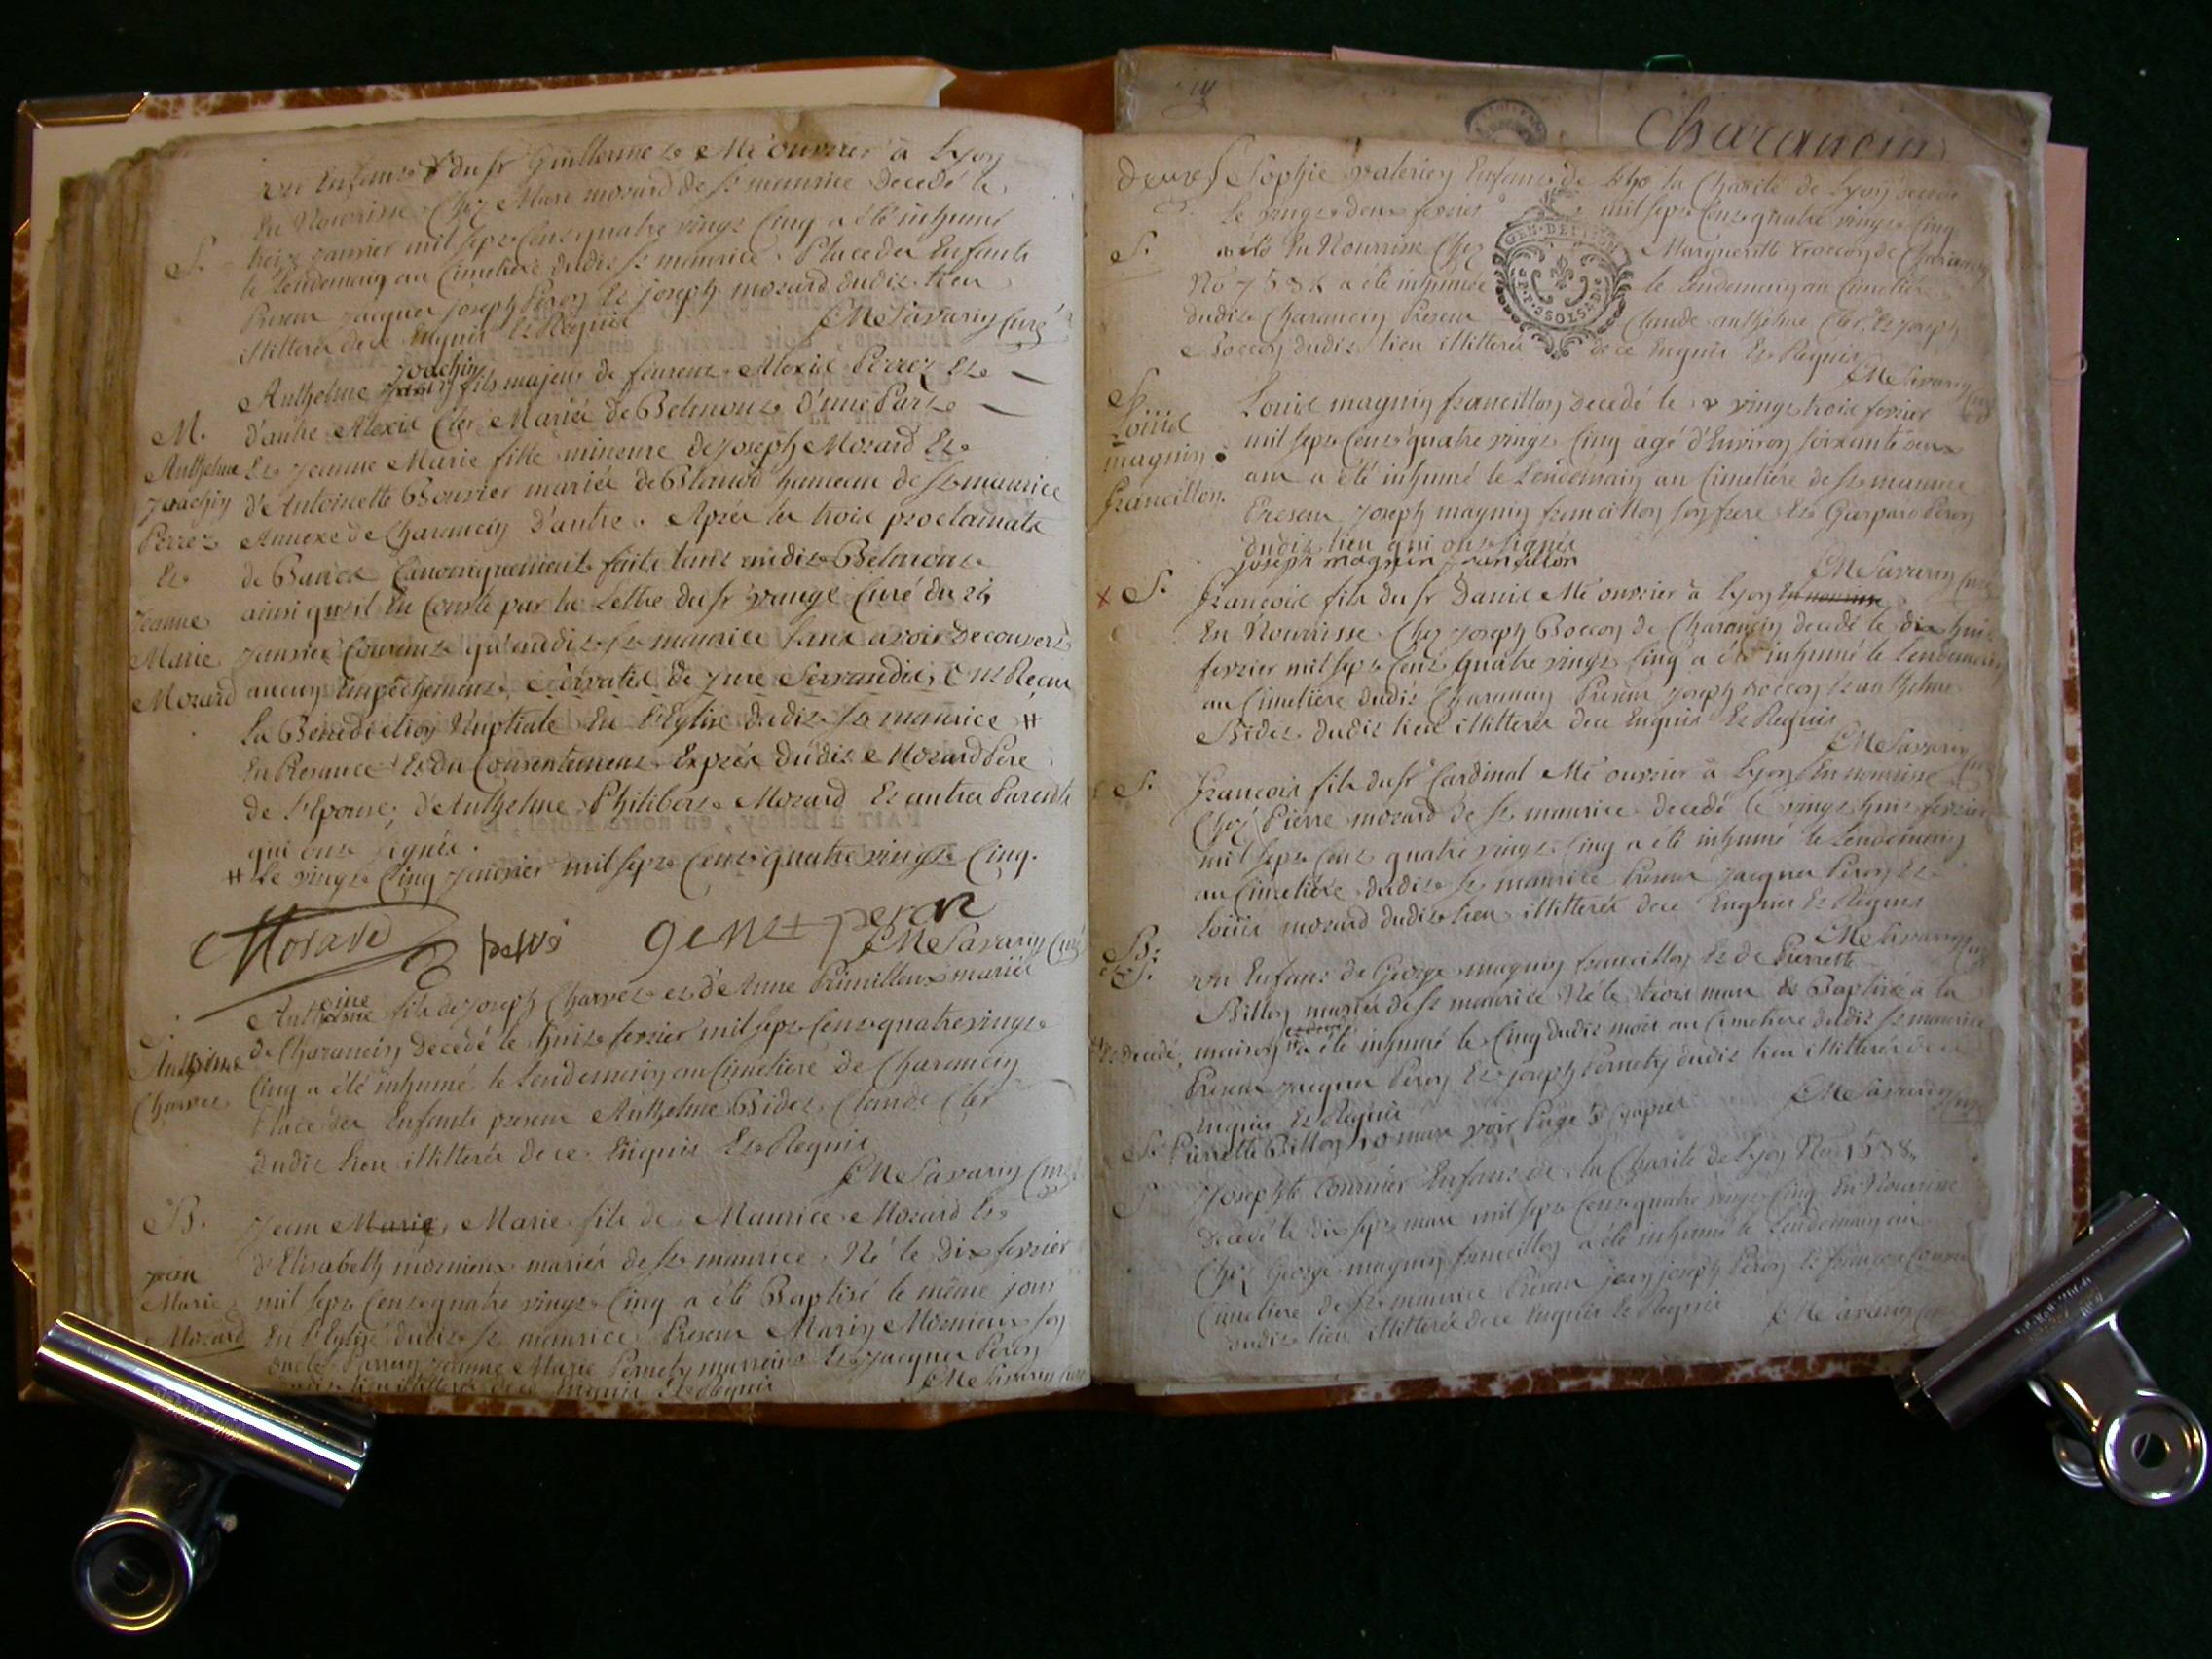 un Enfant du Sr Guillerme Me ouvrier à Lyon
En Nourrisse Chez Marc mozard de St maurice Decedé le
S. treize janvier mil sept Cent quatre vingt Cinq a été inhumé
le Lendemain au Cimetiere dudit St maurice Place des Enfants
Presens jacques joseph Peron Et joseph mozard dudit lieu
illitterés de ce Enquis Et Requis EMSavarin Curé
joachin
Anthelme fils majeur de feurent Alexis Perret Et
M. d'autre Alexis Cler Mariés de Belmont d'une Part
Anthelme Et jeanne Marie fille mineure de joseph Mozard Et
joachin d'Antoinette Bouvier mariés de Blanod hameau de St maurice
Perret Annexe de Charancin d'autre. Après les trois proclamats
Et de Bancs Canoniquement faits tant audit Belmont
ainsi qu'il En Conste par la Lettre du Sr Curé du 24
jeanne
Marie janvier Courant qu'audit St maurice sans avoir Decouvert
Mozard aucun Empêchement, Servatis de jure Servandis, Ont Recu
La Benediction Nuptiale En L'Eglise dudit St maurice #
En Presance Et du Consentement Exprès dudit Mozard Pere
de L'Epouse; d'Anthelme Philibert Mozard Et autres Parents
qui ont signés.
# Le vingt Cinq janvier mil sept Cent quatre vingt Cinq.
Mosard genet peron
EMSavarin Curé
S. Anthoine fils de joseph Charvet et d'Anne Primilleux mariés
Anthoine de Charancin Decedé le huit fevrier mil sept Cent quatre vingt
Charvet Cinq a été inhumé le Lendemain au Cimetiere de Charancin
Place des Enfants presens Anthelme Bidet Claude Cler
dudit Lieu illitterés de ce Enquis Et Requis
EMSavarin Curé
B. jean Marie Marie fils de Maurice Mozard Et
d'Elisabeth mornieux mariés de St maurice Né le Dix fevrier
jean
Marie mil sept Cent quatre vingt Cinq a été Baptisé le même jour
Mozard En L'Eglise dudit St maurice Presens Marin Mornieux son
oncle Parrain jeanne Marie Pernety marreine Et jacques Peron
dudit lieu illitterés de ce Enquis Et Requis EMSavarin
Charancin
deux Sophie Valerien Enfant de la Charité de Lyon decedée
Le vingt deux fevrier mil sept Cent quatre vingt Cinq
GEN. DE DIJON
S. En Nourrisse Chez Marguerite Boccon de Charancin
No a été inhumée le Lendemain au Cimetiere
dudit Charancin Presens Claude anthelme Cler, Et joseph
Boccon dudit lieu illitterés de ce Enquis Et Requis
EMSavarin
S. Louis magnin francillon Decedé le vingt trois fevrier
Louis
magnin mil sept Cent quatre vingt Cinq agé d'Environ soixante deux
francillon. ans a été inhumé le Lendemain au Cimetiére de St maurice
Presens joseph magnin francillon son frere Et Gaspard Peron
dudit lieu qui ont signés
joseph magnin francillon EMSavarin Curé
S. François fils du Sr Danis Me ouvrier à Lyon En nourrisse
En Nourrisse Chez joseph Boccon de Charancin decedé le dix huit
fevrier mil sept Cent quatre vingt Cinq a été inhumé le Lendemain
au Cimetiere dudit Charancin Presens joseph Boccon Et anthelme
Bidet dudit lieu illitterés de ce Enquis Et Requis
EMSavarin
S. François fils du Sr Cardinal Me ouvrier à Lyon En nourrisse
Chez Pierre mozard de St maurice decedé le vingt huit fevrier
mil sept Cent quatre vingt Cinq a été inhumé le Lendemain
au Cimetiére dudit St maurice Presens jacques Peron Et
Louis mozard dudit lieu illitterés de ce Enquis Et Requis
EMSavarin
B. et S. un Enfant de George magnin francillon Et de Pierrette
Billon mariés de St maurice Né le trois mars Et Baptisé à la
# Et decedé maison # a été inhumé le Cinq dudit mois au Cimetiere dudit St maurice
Presens jacques Peron Et joseph Pernety dudit lieu illitterés de ce
Enquis Et Requis EMSavarin
S. Pierrette Billon 10 mars voir Page 5 Cy après
S. josephte Enfant de la Charité de Lyon No 1538,
Decedé le dix sept mars mil sept Cent quatre vingt Cinq En Nourrisse
Chez George magnin francillon a été inhumé le Lendemain au
Cimetiere de St maurice Presens jean joseph Peron Et françois
dudit lieu illitterés de ce Enquis Et Requis EMSavarin